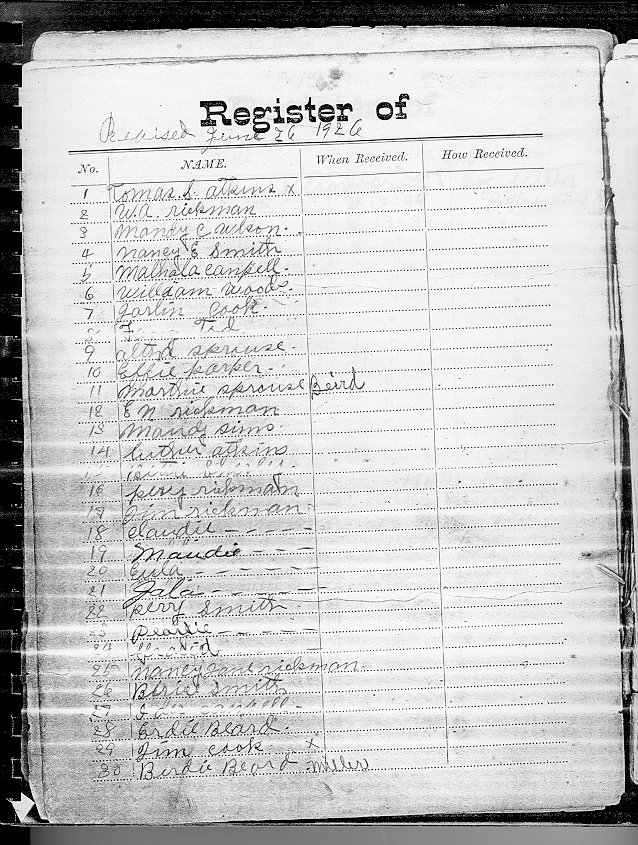 Register of
Revised June 26 1926
No. NAME. When Received. How Received.
1 Tomas S. atkins x
2 W.A. rickman
3 Mandy C wilson.
4 nancy E Smith
5 Malhala canpell.
6 william woods.
7 Garlin Cook.
9 sprouse.
10 Effie parker.
11 Marthie sprouse Beird
12 E N rickman
13 Mandy sims.
14 luther atkins
16 pery rickman
17 Jim rickman
18 claudie - - - - -
19 Maudie - - - -
20 Eula - - - - - -
21 - - - - -
22 perry Smith.
23 Pearlie - - - - -
24
25 nancy Jane rickman
26 Smith
27
28 Erdie Beard.
29 Jim cook x
30 Birdie Beard miller